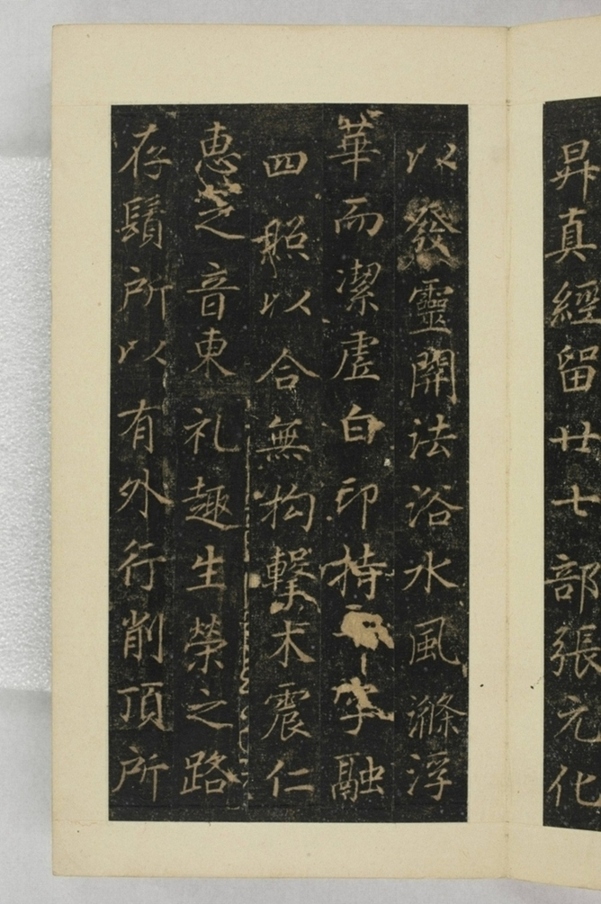 昇真經留廿七部張元化
以發靈關法浴水風滌浮
華而潔虛白印持字融
四照以合無拘擊木震仁
惠之音東礼趣生榮之路
存鬚所以有外行削頂所